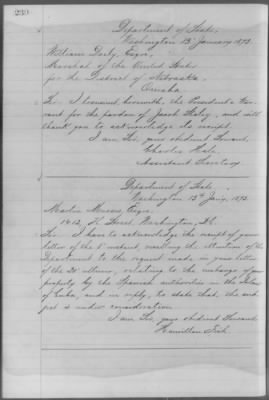 239
Department of State,
Washington 13 January 1873.
William Daily, Esqre,
Marshal of the United States
for the District of Nebraska,
Omaha.
Sir: I transmit herewith, the President's War-
rant for the pardon of Jacob and will
thank you to acknowledge its receipt.
I am, Sir, your obedient servant,
Charles Hale,
Assistant Secretary.
Department of State,
Washington 13th Jany, 1873.
Esqre,
1413, Street, Washington, D.C.
Sir: I have to acknowledge the receipt of your
letter of the instant, recalling the attention of the
Department to the request made in your letter
of the ultimo, relating to the embargo of your
property by the Spanish authorities in the Island
of Cuba, and in reply, to state that the sub-
ject is under consideration.
I am, Sir, your obedient servant
Hamilton Fish.